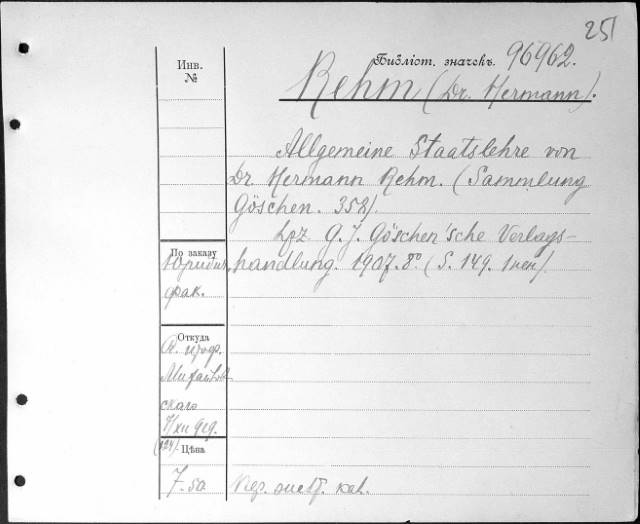 251
Инв. №
Библіот. значекъ. 96962.
Rehm (Dr. Hermann).
Allgemeine Staatslehre von
Dr. Hermann Rehm. (Sammlung
Göschen. 358).
Lpz. G. J. Göschen'sche Verlags-
handlung. 1907. 8° (S. 149.
По заказу
Юридич.
фак.
Откуда
Михайлов
скаго
Цѣна
7.50